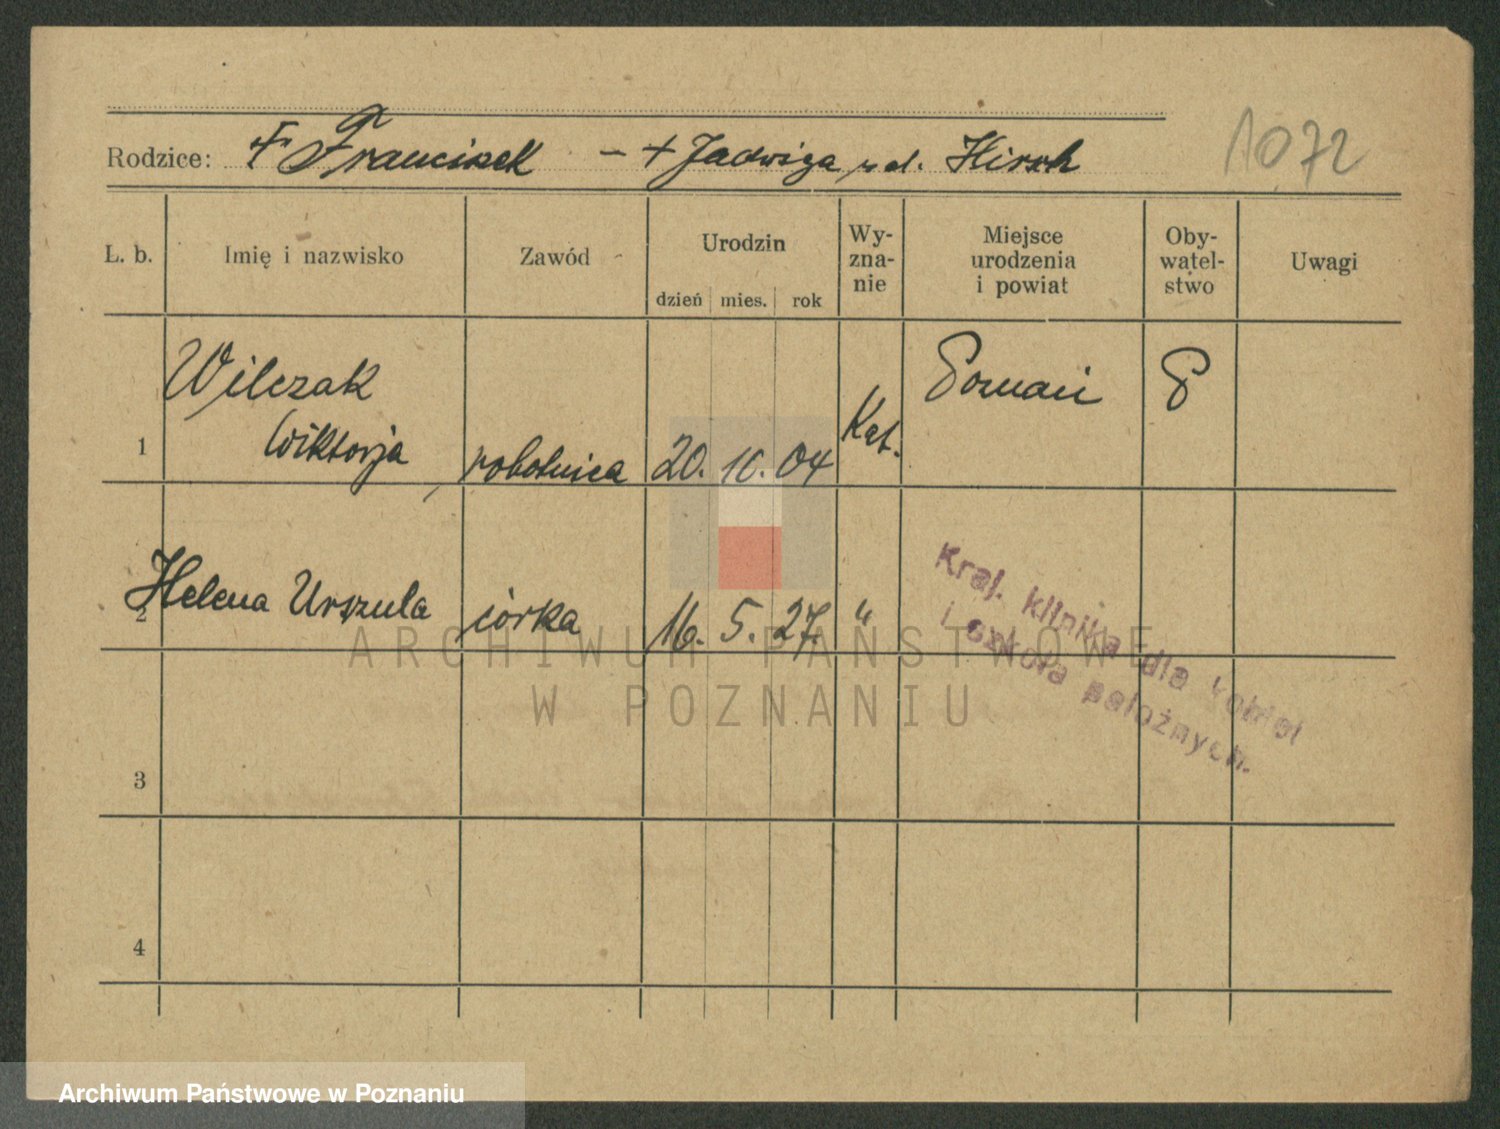 Rodzice: + Franciszek – + Jadwiga ud. Hirsch
1072
L. b. Imię i nazwisko Zawód Urodzin dzień mies. rok Wy-zna-nie Miejsce urodzenia i powiat Oby-watel-stwo Uwagi
1 Wilczak Wiktorja robotnica 20. 10. 04 Kat. Poznań P
2 Helena Urszula córka 16. 5. 27. "
Kraj. klinika dla kobiet
i szkoła położnych.
3
4
ARCHIWUM PAŃSTWOWE
W POZNANIU
Archiwum Państwowe w Poznaniu